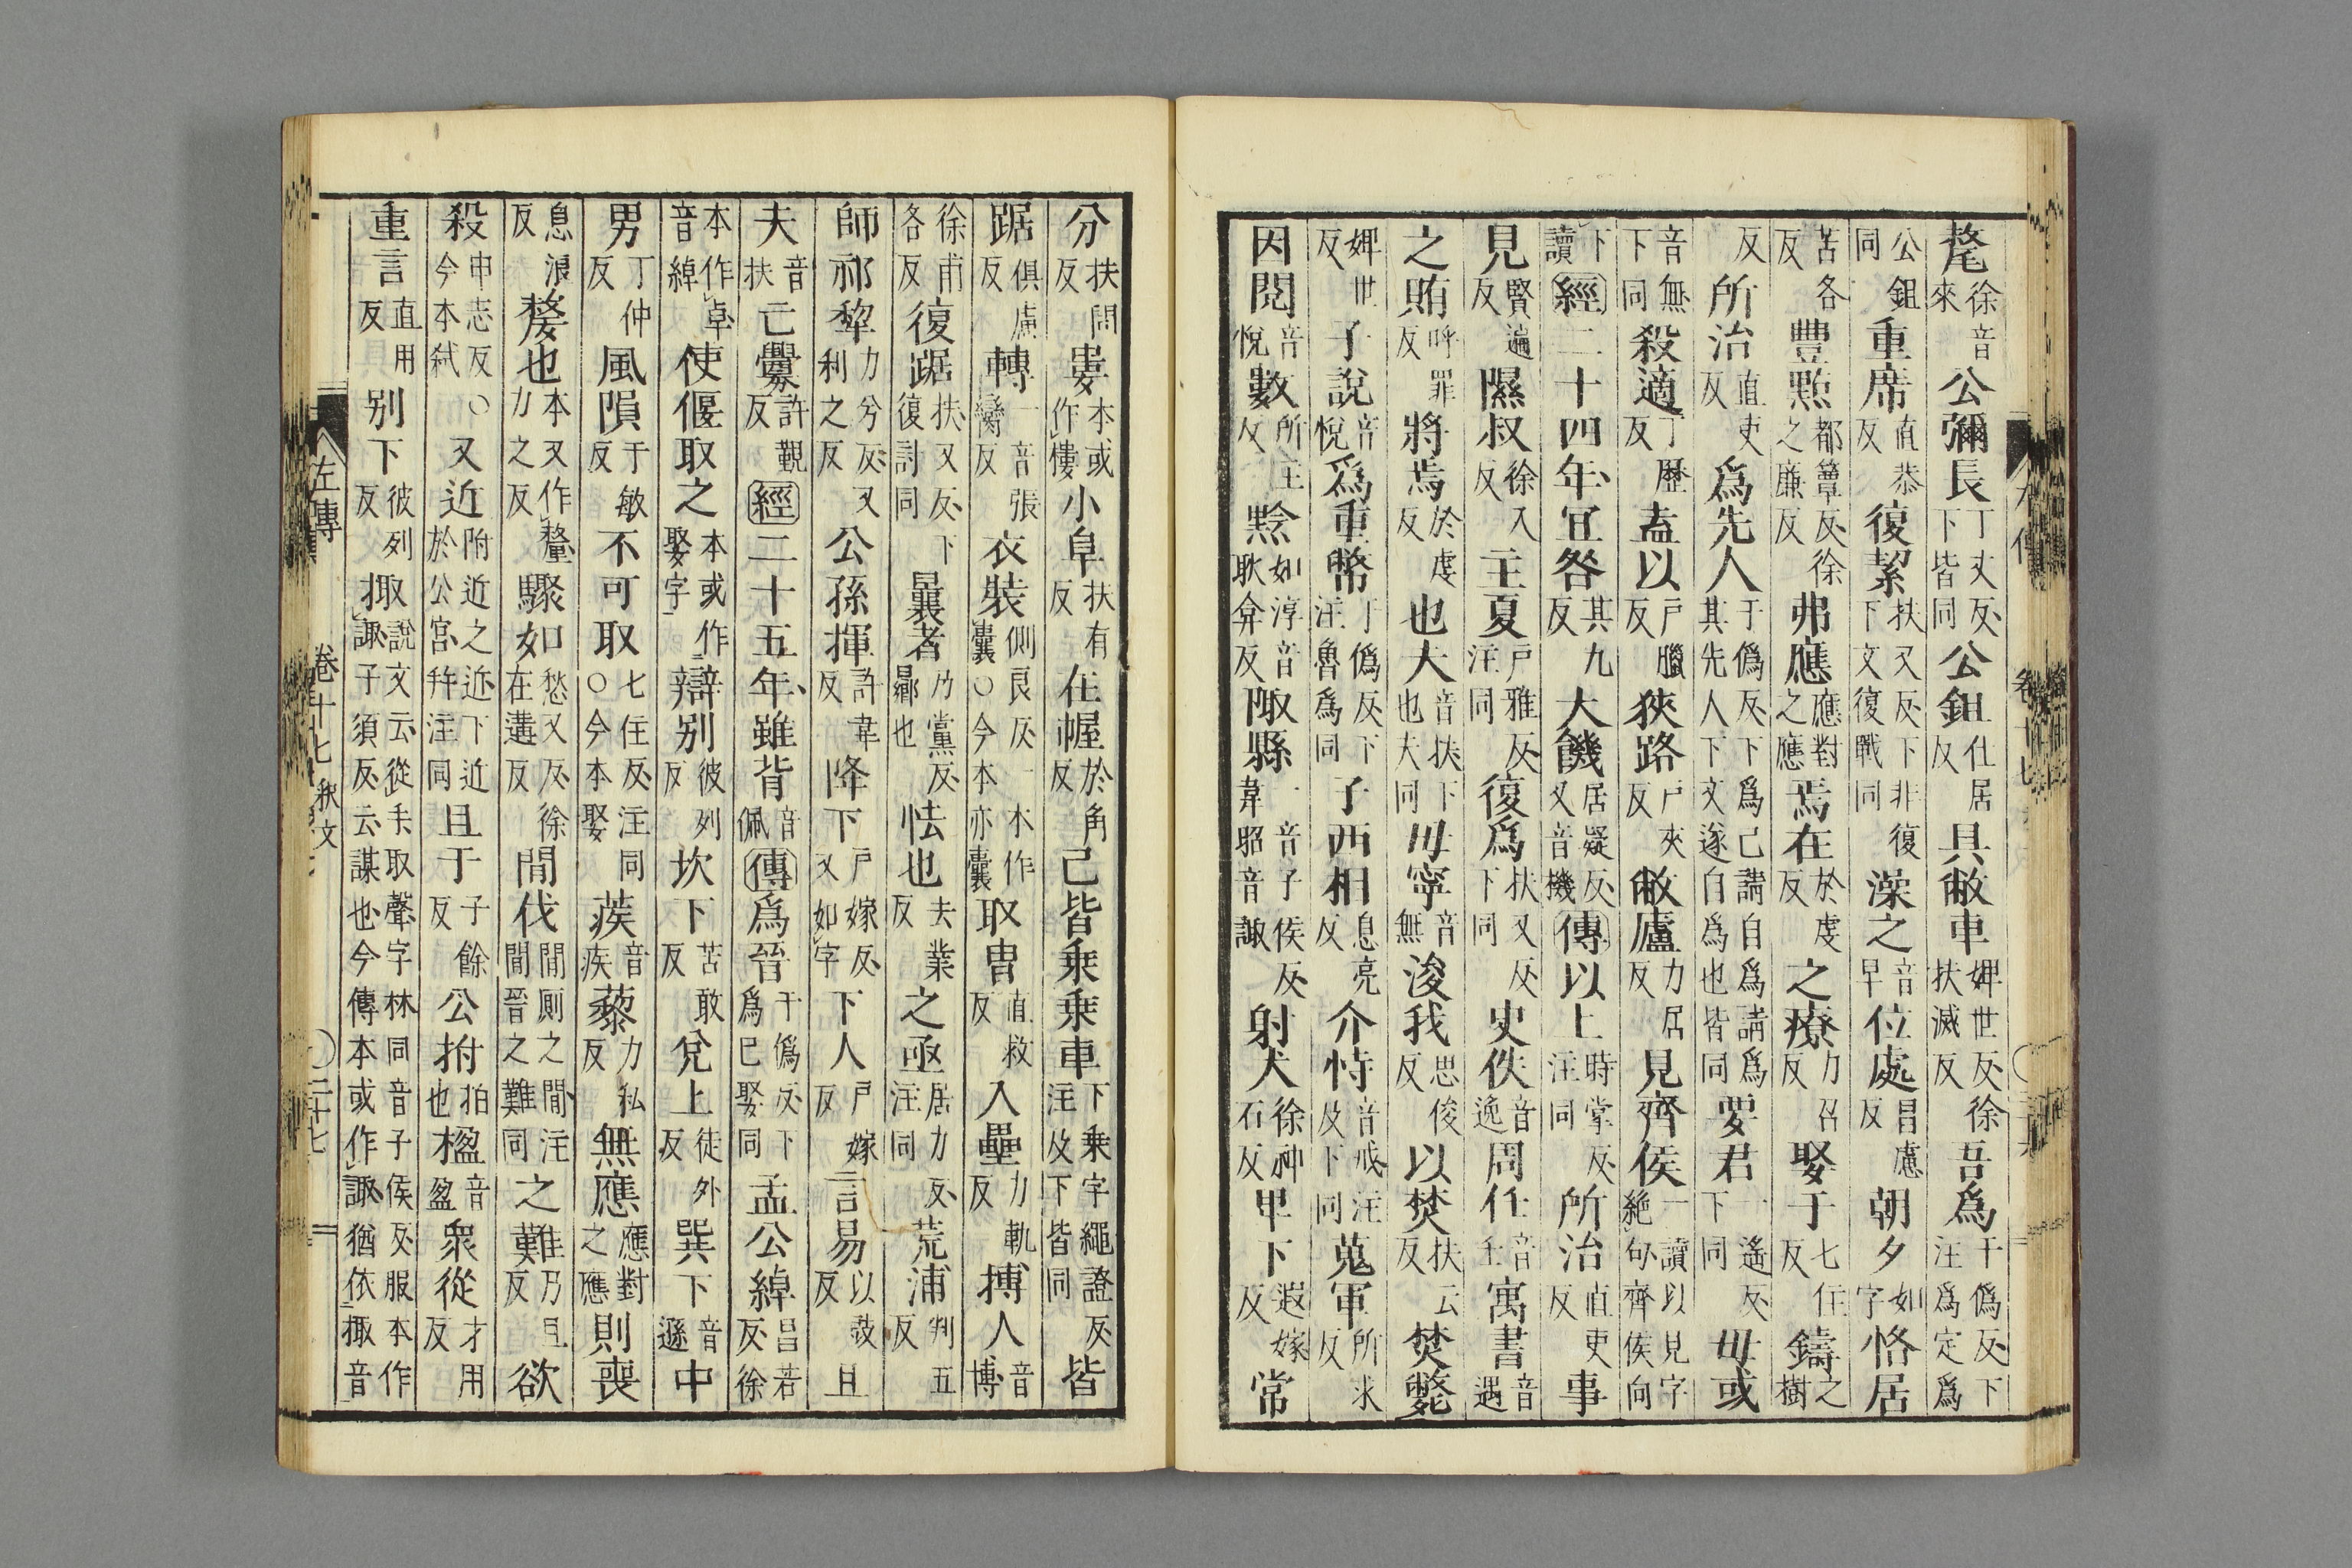 氂徐音來公彌長丁丈反下皆同公鉏仕居反具敝車婢世反徐扶滅反吾爲于僞反下注爲定爲
公鉏同重席直恭反復絜扶又反下文復戰同非復澡之音早位處昌慮反朝夕如字恪居
苦各反豐點都簟反徐之廉反弗應應對之應焉在於虔反之療力召反娶于七住反鑄之樹
反所治直吏反爲先人于僞反下爲己請自爲也其先人下文遂自爲請爲皆同要君一遙反下同毋或
音無下同殺適丁歷反盍以戶臘反狹路戶夾反敝廬力居反見齊侯一讀以見字絶句齊侯向
下讀經二十四年宜咎其九反大饑居疑反又音機傳以上時掌反注同所治直吏反事
見賢遍反隰叔徐入反王夏戶雅反注同復爲扶又反下同史佚音逸周任音壬寓書音遇
之賄呼罪反將焉於虔反也夫音扶下也夫同毋寧音無浚我思俊反以焚扶云反焚斃
婢世反子說音悅爲重幣于僞反下注魯爲同子西相息亮反介恃音戒注及下同蒐軍所求反
因閱音悅數所主反黥如淳音耿弇反陬縣一音子侯反韋昭音諏射犬徐神石反甲下遐嫁反常
分扶問反婁本或作㟺小阜扶有反在幄於角反己皆乘乘車下乘字繩證反注及下皆同皆
踞俱慮反轉一音張臠反衣裝側良反一本作囊○今本亦囊取冑直救反入壘力軌反搏人音博
徐甫各反復踞扶又反下復討同曩者乃黨反曏也怯也去業反之亟居力反注同荒浦判五反
師祁犂力兮反又利之反公孫揮許韋反降下戶嫁反又如字下人戶嫁反言易以豉反且
夫音扶亡釁許覲反經二十五年雖背音佩傳爲晉于僞反下爲己娶同孟公綽昌若反徐
本作卓音綽使偃取之本或作娶字辯別彼列反坎下苦敢反兌上徒外反巽下音遜中
男丁仲反風隕于敏反不可取七住反注同○今本娶蒺音疾藜力私反無應應對之應則喪
息浪反嫠也本又作釐力之反驟如愁又反徐在遘反閒伐閒厠之閒注閒晉之難同之難乃旦反欲
殺申志反○今本弑又近附近之近下近於公宮幷注同且于子餘反公拊拍也楹音盈衆從才用反
重言直用反別下彼列反掫說文云從手取聲字林同音子侯反服本作諏子須反云謀也今傳本或作諏猶依掫音
左傳
卷十七
秋文
二十七